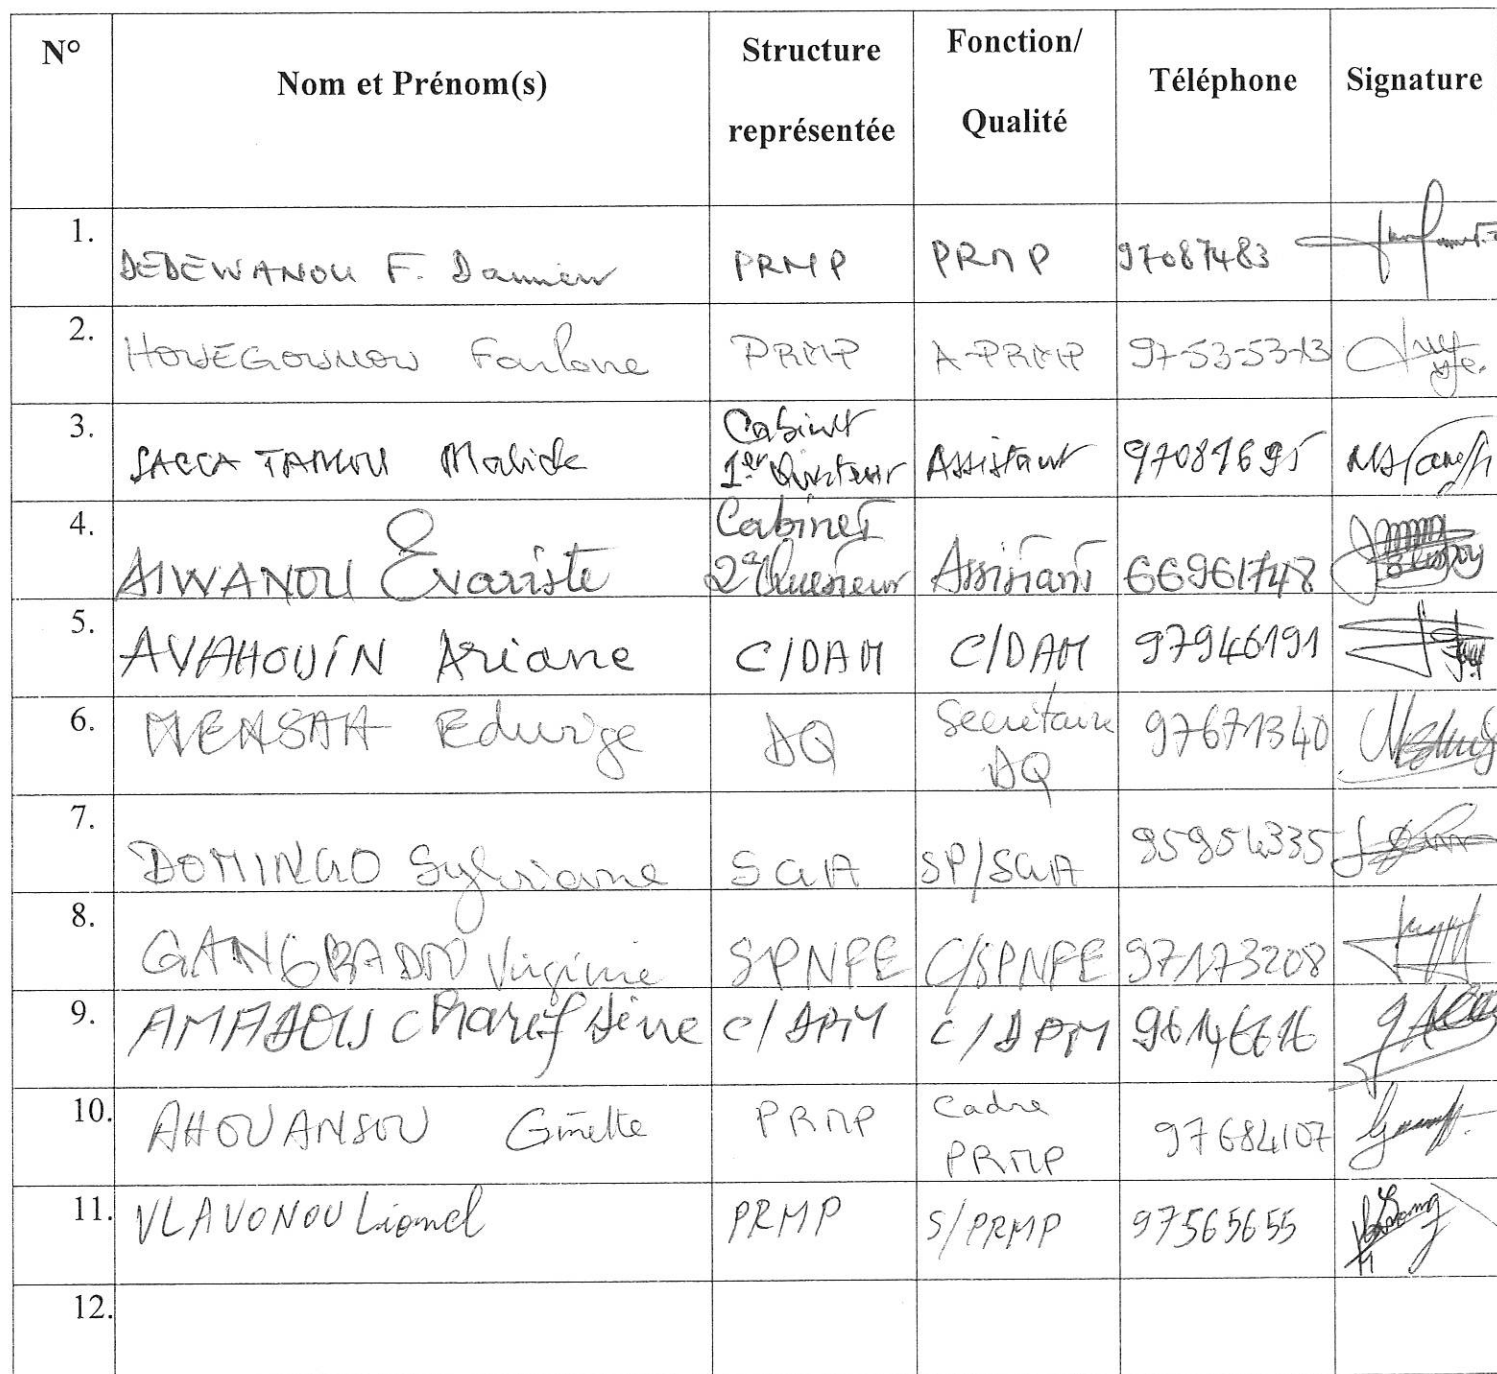 N° Nom et Prénom(s) Structure représentée Fonction/ Qualité Téléphone Signature
1. DEDEWANOU F. Damien PRMP PRMP 97087483
2. HOUEGOUNOU PRMP A-PRMP 97-53-53-13
3. SACCA TAMOU Cabinet 1er Questeur Assistant 97081695
4. AIWANOU Evariste Cabinet 2e Questeur Assistant 66961748
5. AVAHOUIN Ariane C/DAM C/DAM 97946191
6. MENSAH Edwige DQ Secrétaire DQ 97671340
7. DOMINGO Sylviane SGA SP/SGA 95954335
8. GANGBADJO Virginie SPNFE C/SPNFE 97173208
9. AMADOU Charif Dine C/DPM C/DPM
10. AHOUANSOU Ginette PRMP Cadre PRMP 97684107
11. VLAVONOU Lionel PRMP S/PRMP 97565655
12.